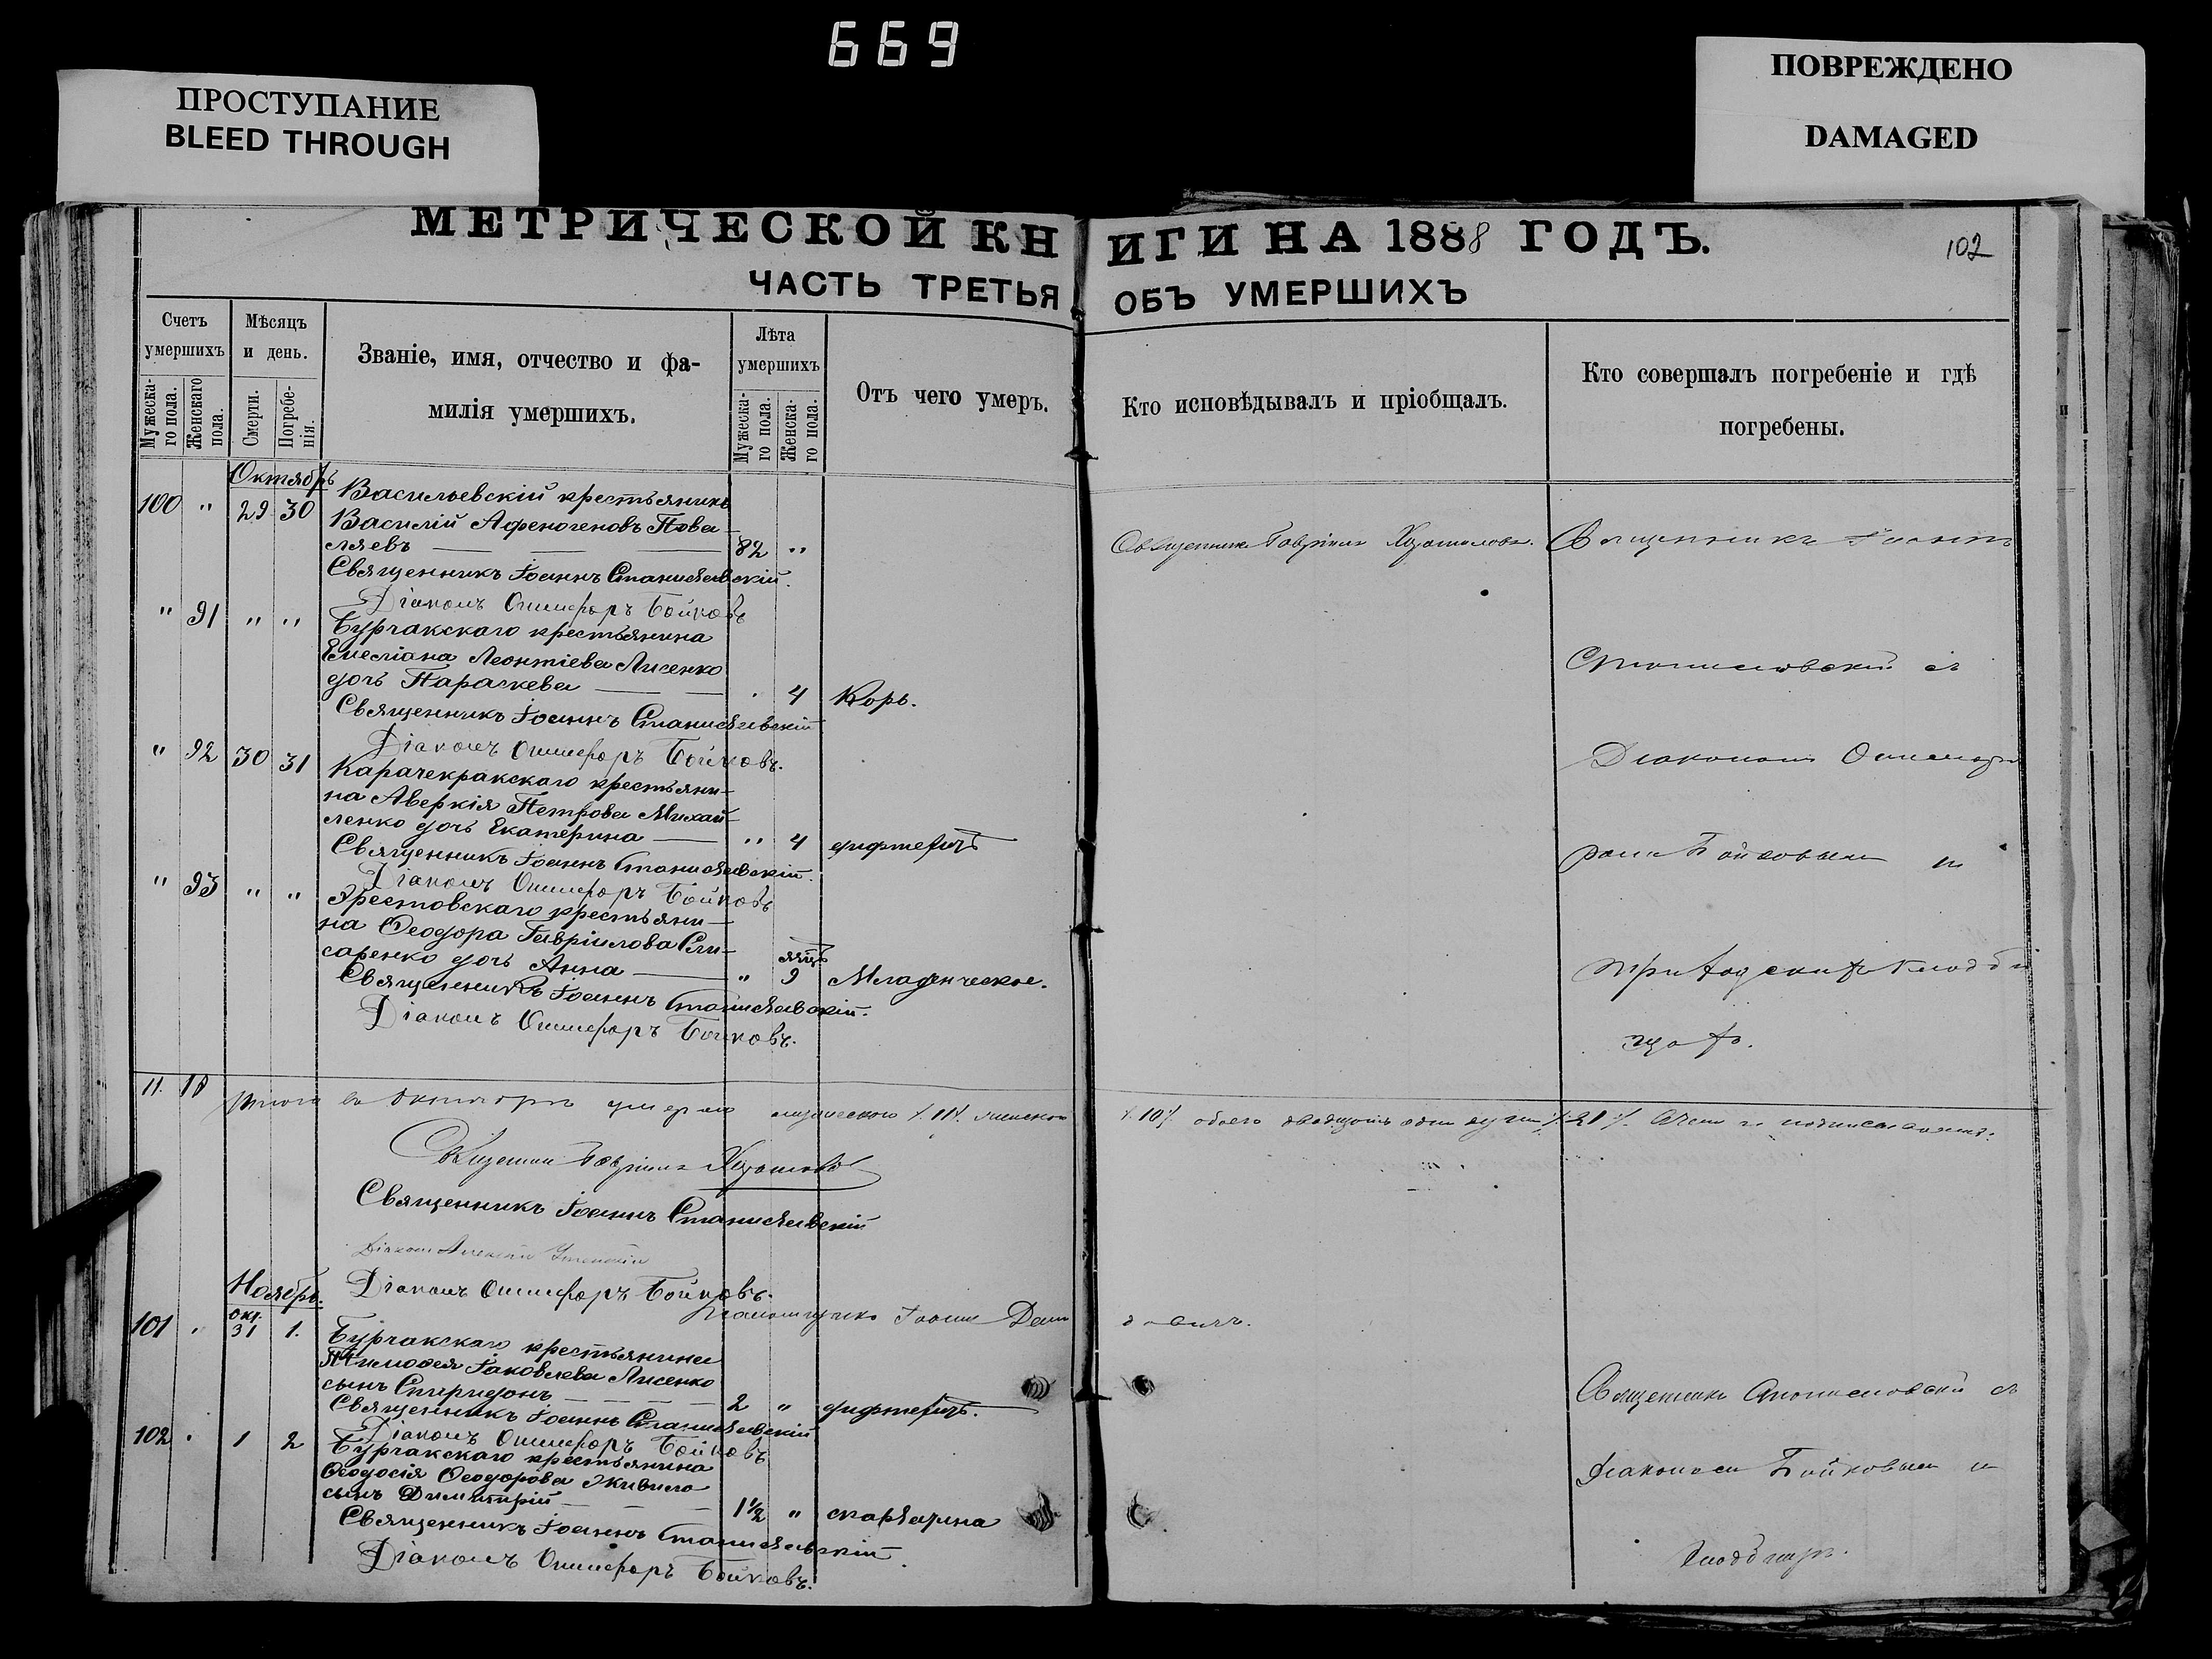 669
ПРОСТУПАНИЕ
BLEED THROUGH
ПОВРЕЖДЕНО
DAMAGED
МЕТРИЧЕСКОЙ КНИГИ НА 1888 ГОДЪ.
102
ЧАСТЬ ТРЕТЬЯ ОБЪ УМЕРШИХЪ
Счетъ умершихъ
Мужеска-го пола.
Женскаго пола.
Мѣсяцъ и день.
Смерти.
Погребе-нія.
Званіе, имя, отчество и фа-
милія умершихъ.
Лѣта умершихъ
Мужеска-го пола.
Женска-го пола.
Отъ чего умеръ.
Кто исповѣдывалъ и пріобщалъ.
Кто совершалъ погребеніе и гдѣ
погребены.
Октябрь
100 " 29 30 Васильевскій крестьянинъ
Василій Афеногеновъ Пова-
ляевъ 82 " Священникъ Гавріилъ Священникъ Іоаннъ
Священникъ Іоаннъ Станиславскій.
Діаконъ Онисифоръ Бойковъ
" 91 " " Бурчакскаго крестьянина
Емеліана Леонтіева Лисенко
дочь Параскева 4 Корь.
Станиславскій съ
Священникъ Іоаннъ Станиславскій
Діаконъ Онисифоръ Бойковъ.
" 92 30 31 Карачекракскаго крестьяни-
на Аверкія Петрова Михай-
ленко дочь Екатерина " 4 дифтеритъ
Діакономъ Онисифо
Священникъ Іоаннъ Станиславскій.
Діаконъ Онисифоръ Бойковъ
ромъ Бойковымъ на
" 93 " " Эрестовскаго крестьяни-
на Ѳеодора Гавріилова Сли-
саренко дочь Анна " 9 мѣц. Младенческое.
приходскихъ кладби
щахъ.
Священникъ Іоаннъ Станиславскій.
Діаконъ Онисифоръ Бойковъ.
11. 10 Итого въ Октябрѣ умерло мужескаго /.11/. женскаго /.10/. обоего двадцать одна душа /.21/. въ чемъ и подписуемся:
Священникъ Гавріилъ
Священникъ Іоаннъ Станиславскій
Діаконъ Онисифоръ Бойковъ.
Псаломщикъ Іоаннъ
Ноябрь.
101 " Окт. 31 1. Бурчакскаго крестьянина
Тимоѳея Іаковлева Лисенко
сынъ Спиридонъ 2 " дифтеритъ.
Священникъ Станиславскій съ
Священникъ Іоаннъ Станиславскій
Діаконъ Онисифоръ Бойковъ
102 " 1 2 Бурчакскаго крестьянина
Ѳеодосія Ѳеодорова Живило
сынъ Димитрій 1½ " скарлатина
Діакономъ Бойковымъ на
кладбищѣ.
Священникъ Іоаннъ Станиславскій
Діаконъ Онисифоръ Бойковъ.